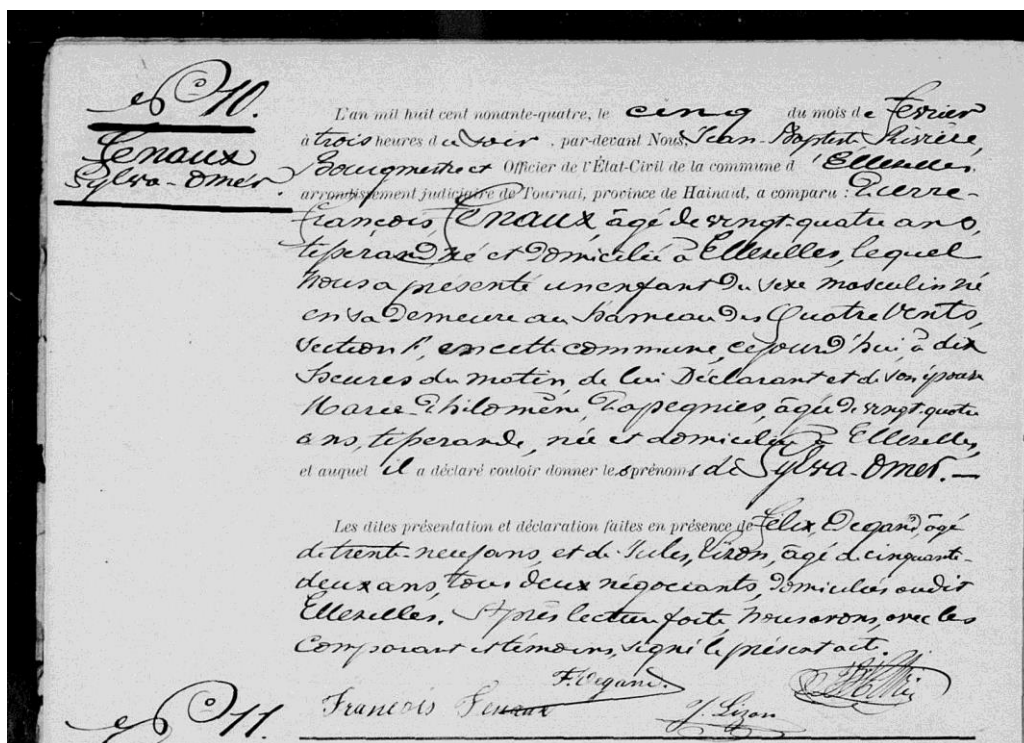 N° 10.
Tenaux
Sylva-Omer.
L'an mil huit cent nonante-quatre, le cinq du mois de Fevrier
à trois heures du soir, par-devant Nous, Jean-Baptiste Rivière,
Bourgmestre et Officier de l'État-Civil de la commune d'Ellezelles,
arrondissement judiciaire de Tournai, province de Hainaut, a comparu : Pierre-
François, Tenaux, âgé de vingt-quatre ans,
tisserand, né et domicilié à Ellezelles, lequel
nous a présenté un enfant du sexe masculin né
en sa demeure au hameau des Quatre Vents,
section F, en cette commune, cejourd'hui, à dix
heures du matin, de lui Déclarant et de son épouse
Marie-Philomène, Papegnies, âgée de vingt-quatre
ans, tisserande, née et domiciliée à Ellezelles,
et auquel il a déclaré vouloir donner les prénoms de Sylva-Omer.—
Les dites présentation et déclaration faites en présence de Félix, Degand, âgé
de trente neuf ans, et de Jules, Lizon, âgé de cinquante-
deux ans, tous deux négociants, domiciliés audit
Ellezelles. Après lecture faite, nous avons, avec les
comparant et témoins, signé le présent act.
F. Degand.
François Tenaux J. Lizon
N° 11.